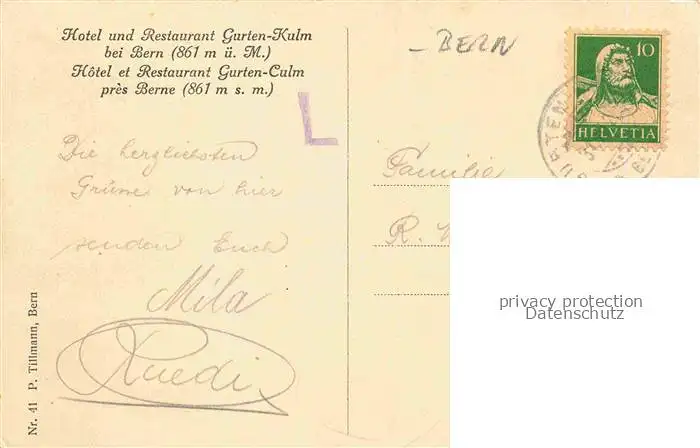 Hotel und Restaurant Gurten-Kulm
bei Bern (861 m ü. M.)
Hôtel et Restaurant Gurten-Culm
près Berne (861 m s. m.)
L
Die herzlichsten
Grüsse von hier
senden Euch
Mila
Ruedi
Nr. 41 P. Tillmann, Bern
- BERN
10
HELVETIA
Familie
R.
privacy protection
Datenschutz